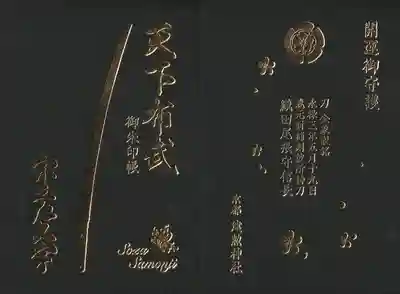 天下布武
御朱印帳
宗三左文字
Soza
Samonji
開運御守護
刀 金象嵌銘
永禄三年五月十九日
義元討捕刻彼所持刀
織田尾張守信長
京都 建勲神社